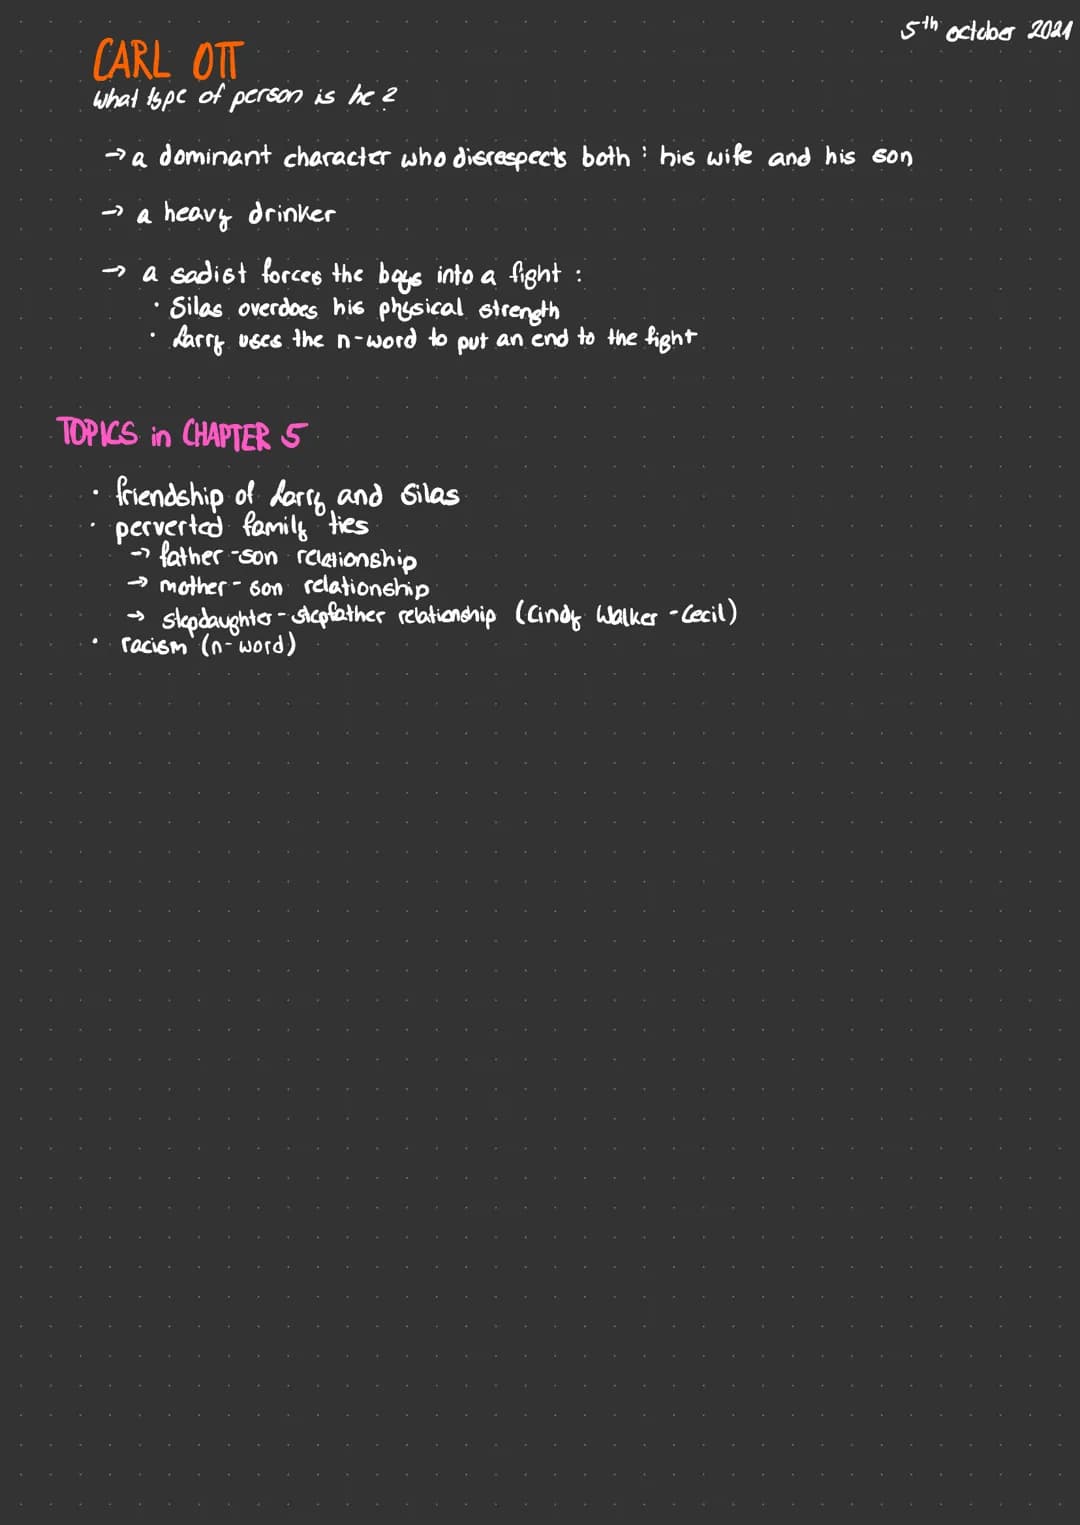 5th october 2021
CARL OTT
what type of person is he?
→ a dominant character who disrespects both : his wife and his son
→ a heavy drinker
→ a sadist forces the boys into a fight :
· Silas overdoes his physical strength
· Larry uses the n-word to put an end to the fight
TOPICS in CHAPTER 5
· friendship of Larry and Silas
· perverted family ties
→ father-son relationship
→ mother-son relationship
→ stepdaughter-stepfather relationship (Cindy Walker - Cecil)
· racism (n-word)